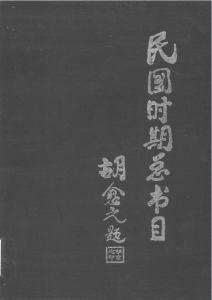 民国时期总书目
胡愈之题